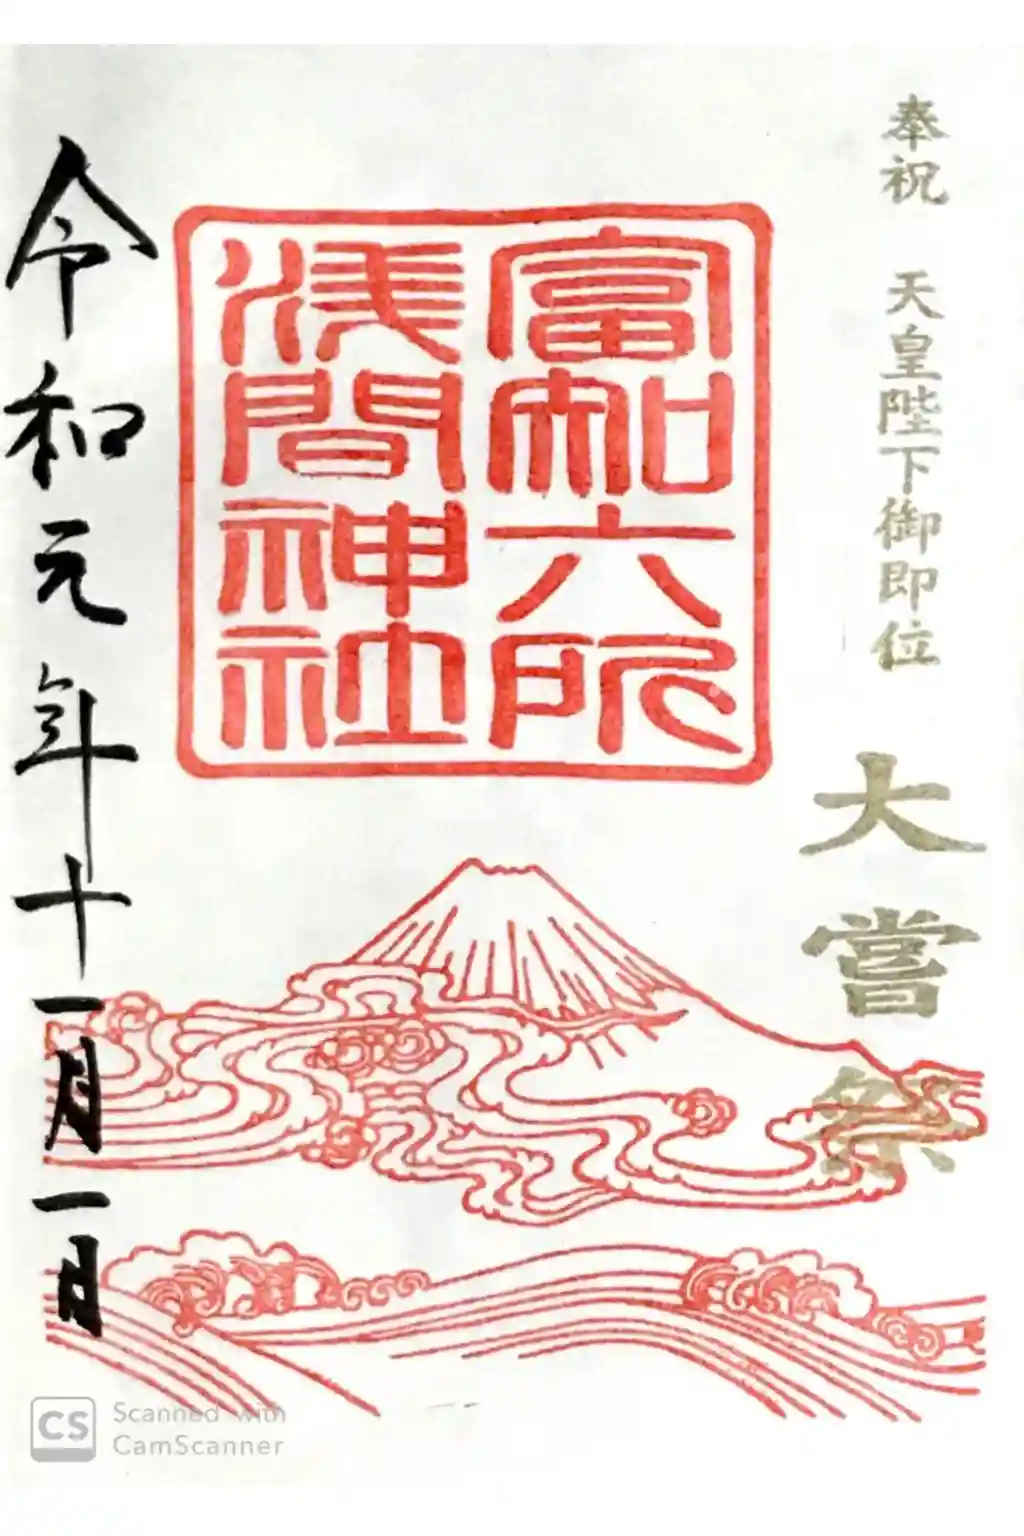 奉祝 天皇陛下御即位
大嘗祭
富知六所
浅間神社
令和元年十一月一日
CS Scanned with
CamScanner